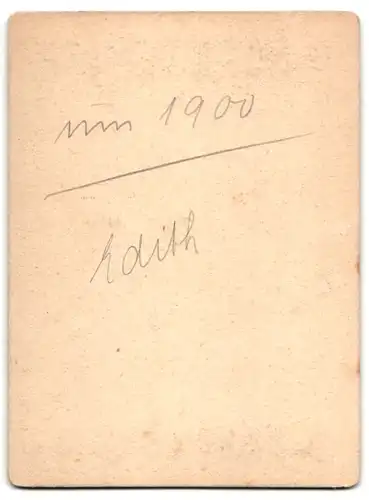 um 1900
Edith